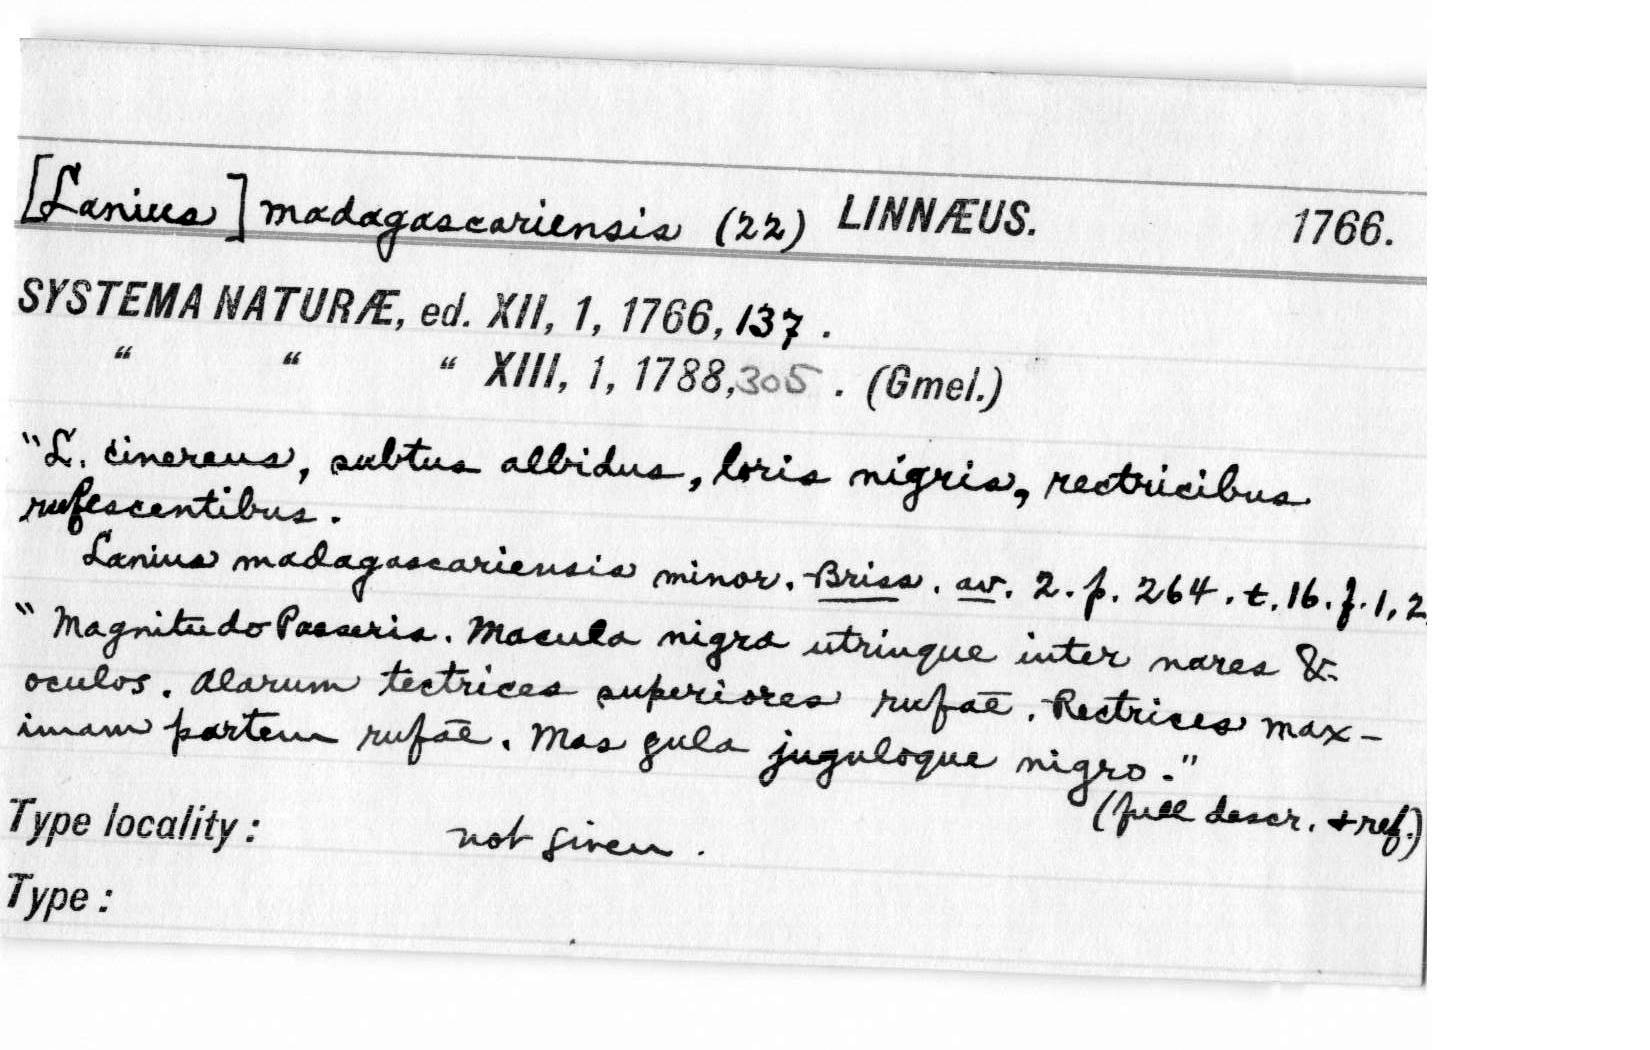 [Lanius] madagascariensis (22) LINNÆUS. 1766.
SYSTEMA NATURÆ, ed. XII, 1, 1766, 137 .
“ “ “ XIII, 1, 1788, 305 . (Gmel.)
"L. cinereus, subtus albidus, loris nigris, rectricibus
rufescentibus.
Lanius madagascariensis minor. Briss. av. 2. p. 264. t. 16. f. 1, 2
"Magnitudo Passeris. Macula nigra utrinque inter nares &
oculos. Alarum tectrices superiores rufae. Rectrices max-
imam partem rufae. Mas gula juguloque nigro."
(full descr. + ref.)
Type locality: not given.
Type: